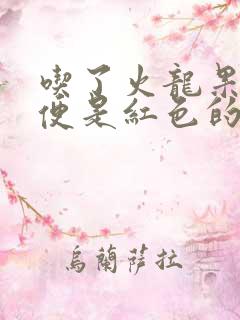 喫了火龍果
便是紅色的
烏蘭薩拉